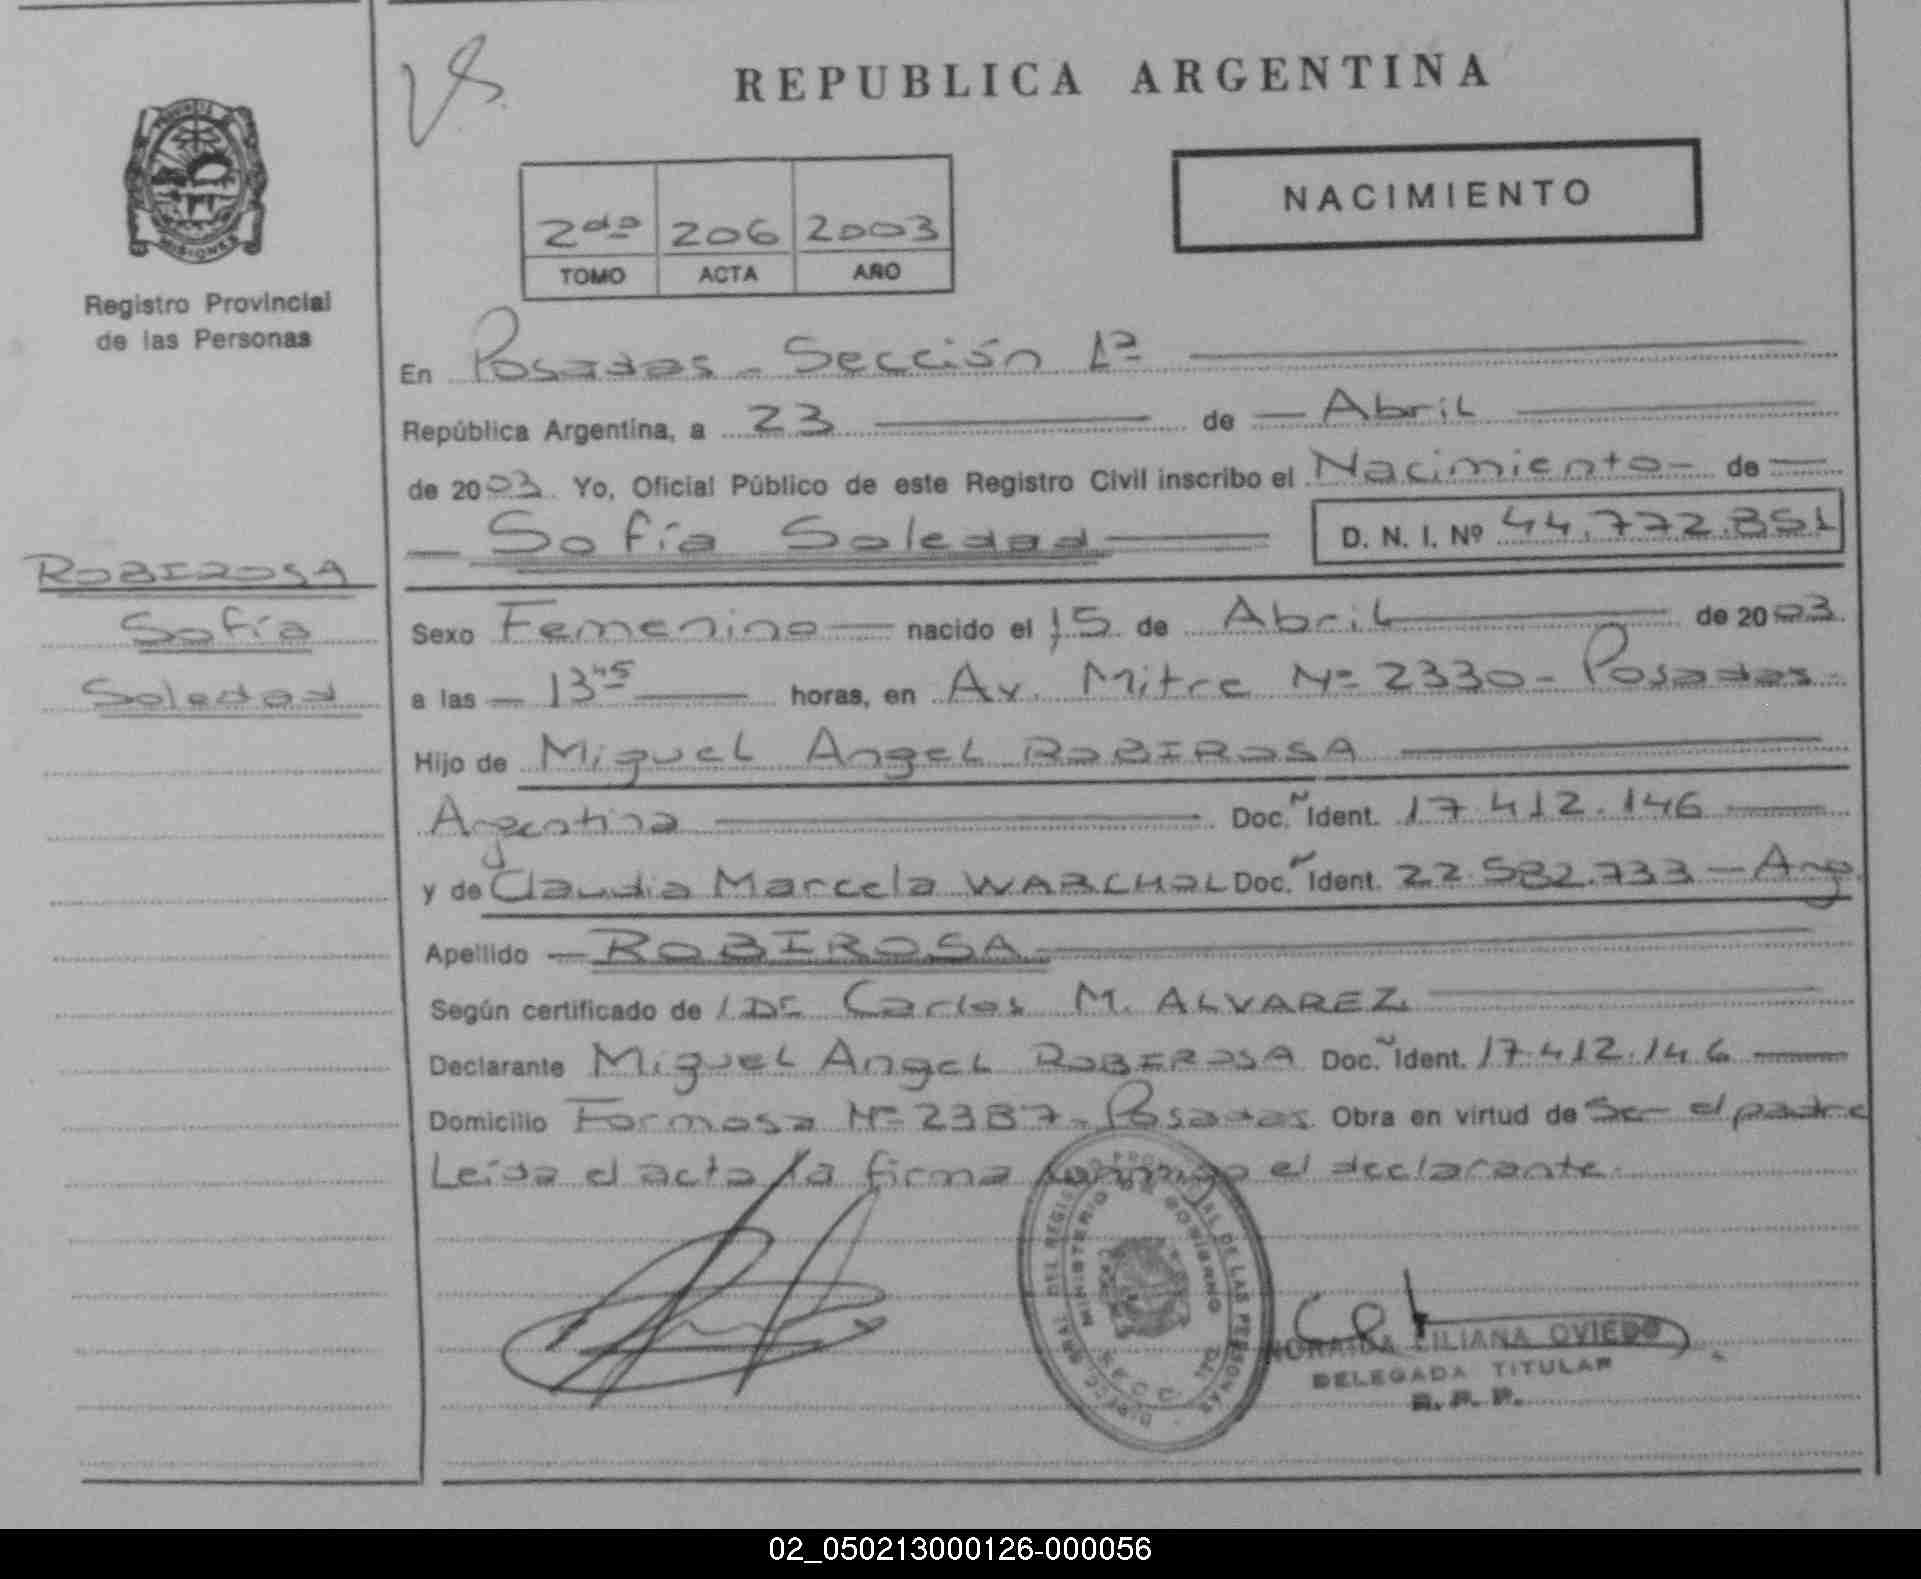 REPUBLICA ARGENTINA
NACIMIENTO
2da 206 2003
TOMO ACTA AÑO
PROVINCIA
MISIONES
Registro Provincial
de las Personas
En Posadas - Sección 1ª
República Argentina, a 23 de Abril
de 2003 Yo, Oficial Público de este Registro Civil inscribo el Nacimiento de
Sofía Soledad D. N. I. Nº 44.772.851
ROBIROSA
Sofía
Soledad
Sexo Femenino nacido el 15 de Abril de 2003
a las 13 45 horas, en Av. Mitre Nº 2330 - Posadas -
Hijo de Miguel Angel ROBIROSA
Argentina Doc. Ident. 17.412.146
y de Claudia Marcela WARCHOL Doc. Ident. 22.582.733 - Arg.
Apellido ROBIROSA
Según certificado de Dr Carlos M. ALVAREZ
Declarante Miguel Angel ROBIROSA Doc. Ident. 17.412.146
Domicilio Formosa Nº 2387 - Posadas Obra en virtud de Ser el padre
Leída el acta la firma conmigo el declarante.
MINISTERIO DE GOBIERNO
DEL REGISTRO PROVINCIAL DE LAS PERSONAS
LILIANA OVIEDO
DELEGADA TITULAR
R. P. P.
02_050213000126-000056